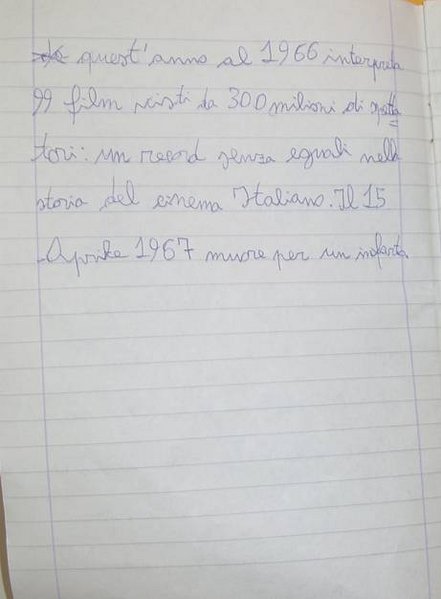 quest'anno al 1966 interpreta
99 film visti da 300 milioni di spetta=
tori: un record senza eguali nella
storia del cinema Italiano. Il 15
Aprile 1967 muore per un infarto